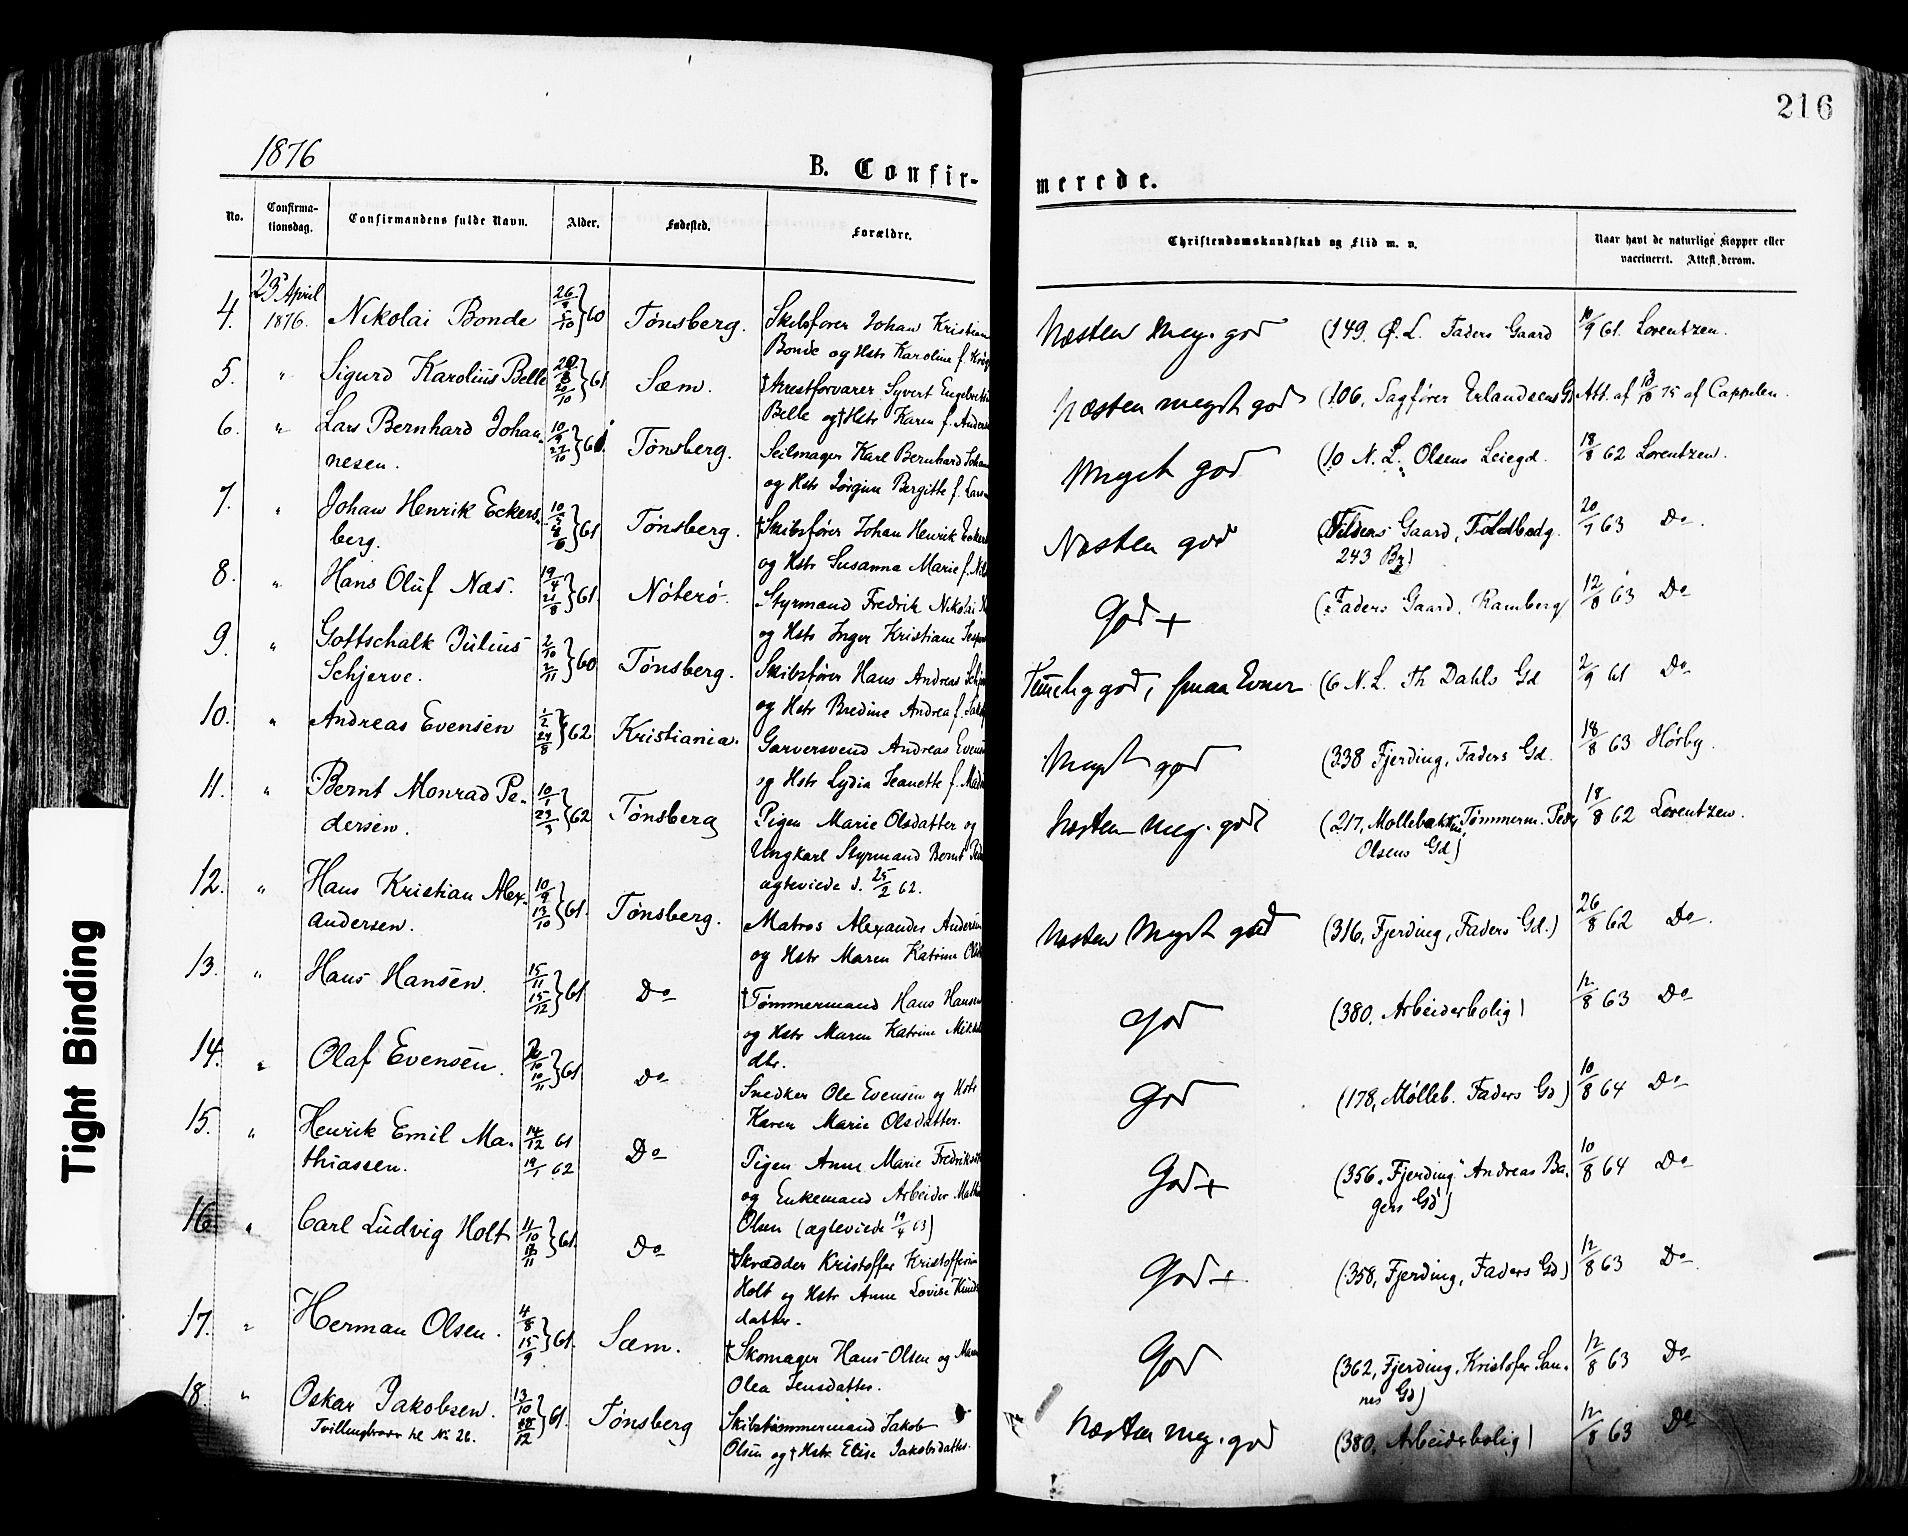 216
1876
B. Confir-
merede.
No.
Confirma-
tionsdag.
Confirmandens fulde Navn.
Alder.
Fødested.
Forældre.
Christendomskundskab og Flid m. v.
Naar havt de naturlige Kopper eller
vaccineret. Attest derom.
4. 23 April 1876. Nikolai Bonde 60 Tønsberg. Skibsfører Johan Kristian
Bonde og Hstr Karoline f.
Næsten meg. god (149. Ø. L. Faders Gaard 61. Lorentzen.
5. " Sigurd Karolius Belle 61 Sæm. †Arrestforvarer Syvert
Belle og †Hstr Karen f.
Næsten meget god (106, Sagfører Erlandsens Att. af 75 af Cappelen.
6. " Lars Bernhard Johan-
nesen. Tønsberg. Seilmager Karl Bernhard
og Hstr Jørgine Bergitte f.
Meget god (10 N. L. Olsens Leiegd. 18/8 62 Lorentzen.
7. " Johan Henrik Eckers-
berg. 61 Tønsberg. †Skibsfører Johan Henrik
og Hstr Susanna Marie f.
Næsten god Gaard,
243
20/7 63 Do.
8. " Hans Oluf Næs. 19/4 21/8 61. Nøterø. Styrmand Fredrik Nikolai
og Hstr Inger Kristiane
God + (Faders Gaard, Ramberg) 12/8 63 Do
9. " Gottschalk Julius
Schjerve. 2/10 2/11 60 Tønsberg. Skibsfører Hans Andreas
og Hstr Bredine Andrea f.
Temelig god, smaa Evner (6 N. L. Th Dahls Gd 2/9 61 Do
10. " Andreas Evensen 1/2 24/8 62 Kristiania. Garversvend Andreas
og Hstr Lydia Jeanette f.
Meget god (338 Fjerding, Faders Gd. 18/8 63 Hørby.
11. " Bernt Monrad Pe-
dersen. 10/1 23/3 62 Tønsberg Pigen Marie Olsdatter og
Ungkarl Styrmand Bernt
ægteviede d. 25/2 62.
Næsten meg. god (217, Møllebakken, Tømmerm.
Olsens Gd) 18/8 62 Lorentzen.
12. " Hans Kristian Alex-
andersen. 10/9 13/10 61. Tønsberg. Matros Alexander
og Hstr Maren Katrine
Næsten meget god (316, Fjerding, Faders Gd.) 26/8 62 Do.
13. " Hans Hansen. 15/11 15/12 61 Do †Tømmermand Hans Hansen
og Hstr Maren Katrine
dtr.
God (380, Arbeiderbolig) 12/8 63 Do
14. " Olaf Evensen. 10/11 61 Do Snedker Ole Evensen og Hstr
Karen Marie Olsdatter.
God (178, Mølleb. Faders Gd) 10/8 64 Do
15. " Henrik Emil Ma-
thiassen. 14/12 61 19/1 62 Do Pigen Anne Marie
og Enkemand Arbeider
Olsen (ægteviede 19/4 63)
God + (356, Fjerding Andreas Ba-
gers Gd) 10/8 64 Do
16. " Carl Ludvig Holt 61. Do †Skrædder Kristoffer
Holt og Hstr Anne Lovise
datter.
God + (358, Fjerding, Faders Gd) 12/8 63 Do
17. " Herman Olsen. 4/8 15/9 61. Sæm. †Skomager Hans Olsen og
Olea Jensdatter.
God (362, Fjerding, Kristofer San-
nes Gd) 12/8 63 Do
18. " Oskar Jakobsen. 61. Tønsberg Skibstømmermand Jakob
Tvillingbroer til No 28.
Olsen og †Hstr Elise Jakobsdatter.
Næsten meg. god (380, Arbeiderbolig) 12/8 63 Do
Tight Binding